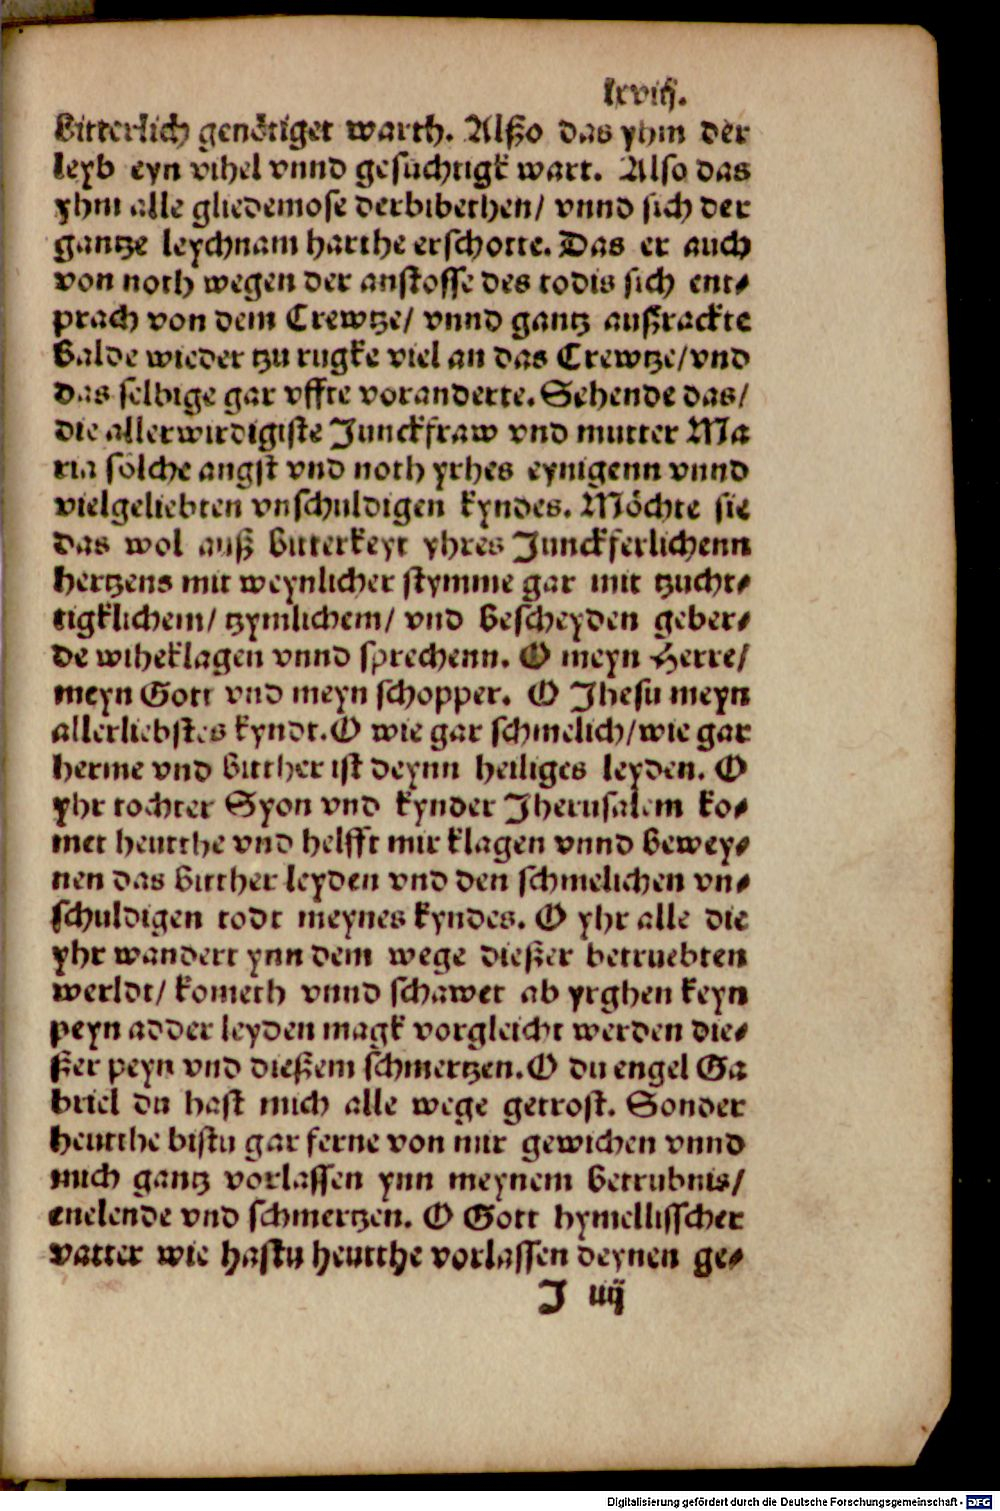 lxviij.
bitterlich genötiget warth. Alßo das yhm der
leyb eyn vihel vnnd gesuchtigk wart. Also das
yhm alle gliedemose derbibethen/ vnnd sich der
gantze leychnam harthe erschotte. Das er auch
von noth wegen der anstosse des todis sich ent⸗
prach von dem Crewtze/ vnnd gantz außrackte
Balde wieder tzu rugke viel an das Crewtze/vnd
das selbige gar vffte voranderte. Sehende das/
die allerwirdigiste Junckfraw vnd mutter Ma
ria solche angst vnd noth yrhes eynigenn vnnd
vielgeliebten vnschuldigen kyndes. Möchte sie
das wol auß bitterkeyt yhres Junckferlichenn
hertzens mit weynlicher stymme gar mit tzucht⸗
tigklichem/ tzymlichem/ vnd bescheyden geber⸗
de wiheklagen vnnd sprechenn. O meyn Herre/
meyn Gott vnd meyn schopper. O Jhesu meyn
allerliebstes kyndt. O wie gar schmelich/wie gar
herme vnd bitther ist deynn heiliges leyden. O
yhr tochter Syon vnd kynder Jherusalem ko⸗
met heutthe vnd helfft mir klagen vnnd bewey⸗
nen das bitther leyden vnd den schmelichen vn⸗
schuldigen todt meynes kyndes. O yhr alle die
yhr wandert ynn dem wege dießer betruebten
werldt/ kometh vnnd schawet ab yrghen keyn
peyn adder leyden magk vorgleicht werden die⸗
ßer peyn vnd dießem schmertzen. O du engel Ga
briel du hast mich alle wege getrost. Sonder
heutthe bistu gar ferne von mir gewichen vnnd
mich gantz vorlassen ynn meynem betrubnis/
enelende vnd schmertzen. O Gott hymellisscher
vatter wie hastu heutthe vorlassen deynen ge⸗
J iiij
Digitalisierung gefördert durch die Deutsche Forschungsgemeinschaft - DFG